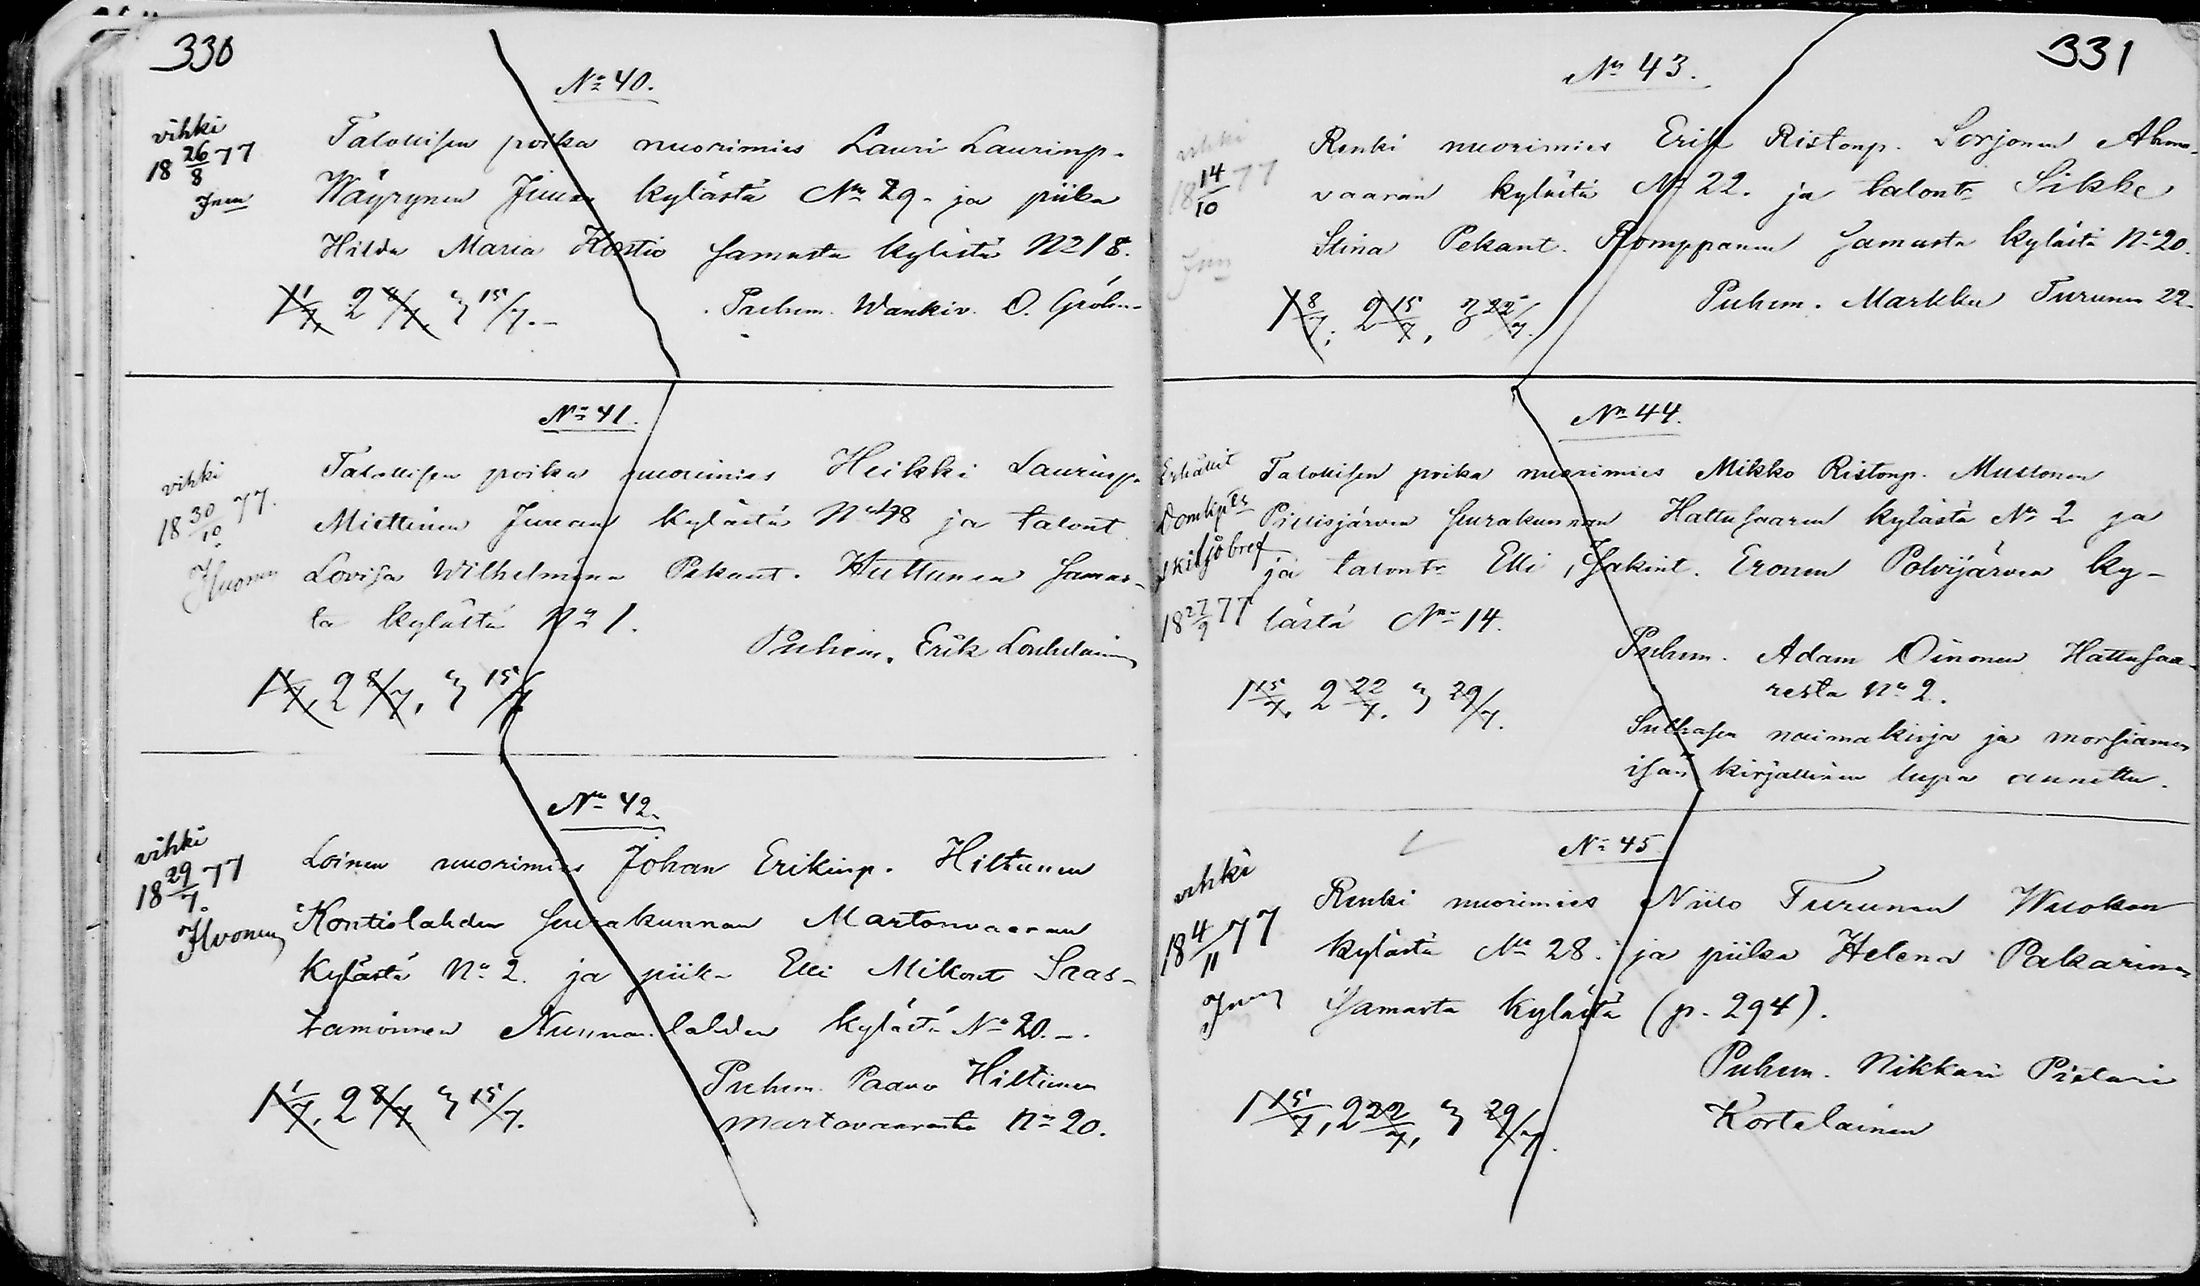 330
No 40.
vihki
18 26/8 77
Talollisen poika nuorimies Lauri Laurinp.
Wäyrynen Juuan kylästä No 29. ja piika
Hilda Maria Kostio samasta kylästä No 18.
1 1/7, 2 8/7, 3 15/7.
Puhem. Wankiv. O. Gröhn
No 41.
vihki
18 30/10 77.
Talollisen poika nuorimies Heikki Laurinp.
Miettinen Juuan kylästä No 48 ja talont.
Lovisa Wilhelmina Pekant. Huttunen samas-
ta kylästä No 1.
Puhem. Erik Louhelainen
1 1/7, 2 8/7, 3 15/7
No 42.
vihki
18 29/7 77
Ihvonen
Loinen nuorimies Johan Erikinp. Hiltunen
Kontiolahden seurakunnan Martonvaaran
kylästä No 2. ja piika Elli Mikont Saas-
tamoinen Nunnanlahden kylästä No 20.
Puhem. Paavo Hiltunen
Martovaarasta No 20.
1 1/7, 2 8/7, 3 15/7.
331
No 43.
vihki
18 14/10 77
Renki nuorimies Erik Ristonp. Sorjonen Ahmo-
vaaran kylästä No 22. ja talont. Sikke
Stina Pekant. Romppanen samasta kylästä No 20.
Puhem. Markku Turunen 22
1 8/7, 2 15/7, 3 22/7.
No 44.
18 27/9 77
Talollisen poika nuorimies Mikko Ristonp. Mustonen
Pielisjärven seurakunnan Hattusaaren kylästä No 2 ja
ja talont. Elli Isakint. Eronen Polvijärven ky-
lästä No 14.
Puhem. Adam Oinonen Hattusaa-
resta No 2.
Sulhasen naimakirja ja morsiamen
isän kirjallinen lupa annettu.
1 15/7, 2 22/7. 3 29/7.
No 45
vihki
18 4/11 77
Renki nuorimies Niilo Turunen Wuokon
kylästä No 28. ja piika Helena Pakarinen
samasta kylästä (p. 294).
Puhem. Nikkari Pietari
Kortelainen
1 15/7, 2 22/7, 3 29/7.